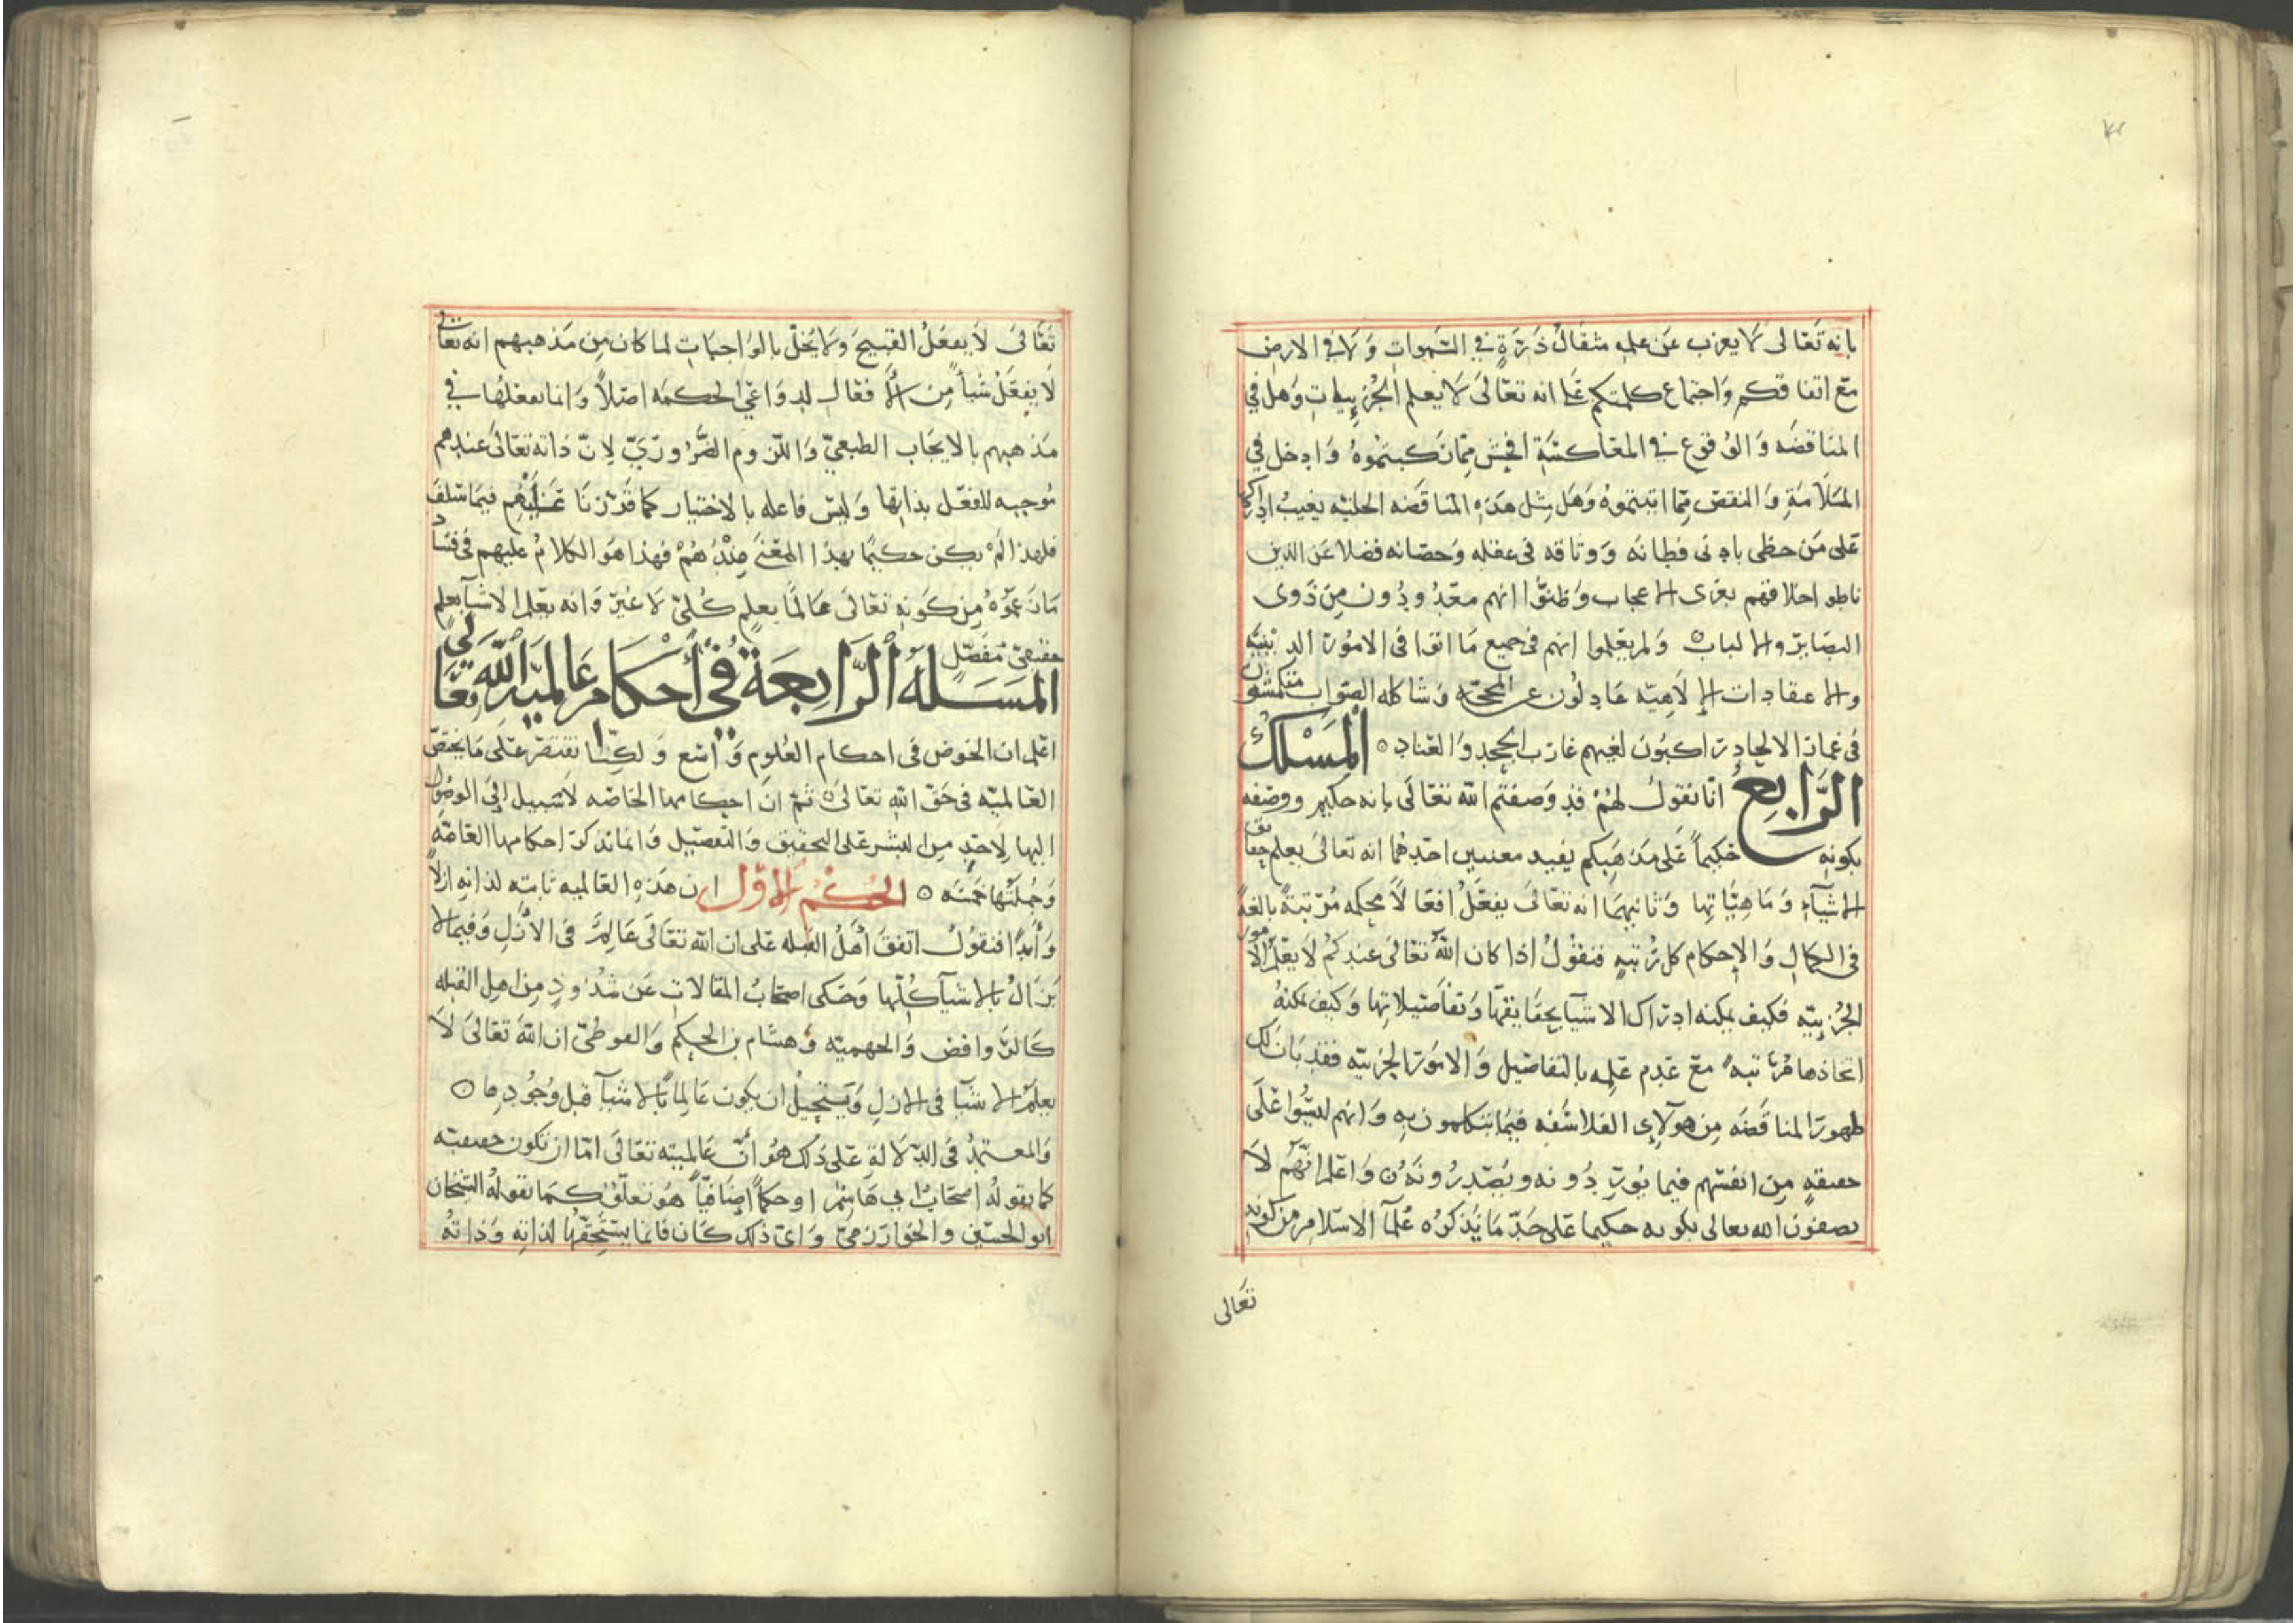 بانه تعالى لا يعزب عن علمه مثقال ذرة في السموات ولا في الارض
مع اتفاقكم واجتماع كلمتكم على انه تعالى لا يعلم الجزييات وهل في
المناقضه والوقوع في المعاكسة افحش مما نكبتموه وادخل في
الملامة والنقص مما اتيتموه وهل مثل هذه المناقضه الجليه يغيب ادراكها
على من حظى بادنى فطانه ووثاقه في عقله وحصانه فضلا عن الذين
ناطوا اخلاقهم بعرى الاعجاب وظنوا انهم معدودون من ذوى
البصاير والالباب ولم يعلموا انهم في جميع ما اتوا في الامور الدينيه
والاعتقادات الالاهيه عادلون عن المحجه وشاكله الصواب منكمشون
في غمار الالحاد راكبون لغيهم غارب الجحد والعناد المسلك
الرابع انا نقول لهم قد وصفتم الله تعالى بانه حكيم ووصفه
بكونه حكيماً على مذهبكم يفيد معنيين احدهما انه تعالى يعلم حقايق
الاشيآء وماهياتها وثانيهما انه تعالى يفعل افعالاً محكمه مرتبة بالغة
في الكمال والاحكام كل رتبه فنقول اذا كان الله تعالى عندكم لا يعلم الامور
الجزييه فكيف يمكنه ادراك الاشيآ بحقايقها وتفاصيلاتها وكيف يمكنه
اتحاذها مرتبه مع عدم علمه بالتفاصيل والامور الجزييه فقد بان لك
ظهور المناقضه من هولآى الفلاسفه فيما يتكلمون به وانهم ليسوا على
حقيقه من انفسهم فيما يوردونه ويصدرونه واعلم انهم لا
يصفون الله تعالى بكونه حكيما على حد ما يذكره علمآ الاسلام من كونه
تعالى
تعالى لا يفعل القبيح ولا يخل بالواجبات لما كان من مذهبهم انه تعالى
لا يفعل شيأ من الافعال لدواعي الحكمه اصلاً وانما يفعلها في
مذهبهم بالايجاب الطبعي واللزوم الضروري لان ذاته تعالى عندهم
موجبه للفعل بذاتها وليس فاعله بالاختيار كما قررنا عنهم فيما سلف
فلهذا لم يكن حكيما بهذا المعنى عندهم فهذا هو الكلام عليهم في فساد
ما زعموه من كونه تعالى عالما بعلم كلي لا غير وانه يعلم الاشيآ بعلم
حقيقي مفصل
المسئله الرابعة في أحكام عالميه الله تعالى
اعلم ان الخوض في احكام العلوم واسع ولكنا نقتصر على ما يختص
العالميه في حق الله تعالى ثم ان احكامها الخاصه لا سبيل الى الوصول
اليها لاحد من البشر على التحقيق والتفصيل وانما نذكر احكامها العامه
وجملتها خمسه الحكم الاول ان هذه العالميه ثابته لذاته ازلاً
وأبداً فنقول اتفق أهل القبله على ان الله تعالى عالم في الازل وفيما لا
يزال بالاشيآ كلها وحكى اصحاب المقالات عن شذوذ من اهل القبله
كالروافض والجهميه وهشام بن الحكم والفوطي ان الله تعالى لا
يعلم الاشيآ في الازل ويستحيل ان يكون عالما بالاشيآ قبل وجودها
والمعتمد في الدلالة على ذلك هو أن عالميته تعالى اما ان تكون حقيقيه
كما يقوله اصحاب ابي هاشم او حكماً اضافياً هو تعلق كما يقوله الشيخان
ابو الحسين والخوارزمي واي ذلك كان فانما يستحقها لذاته وذاته